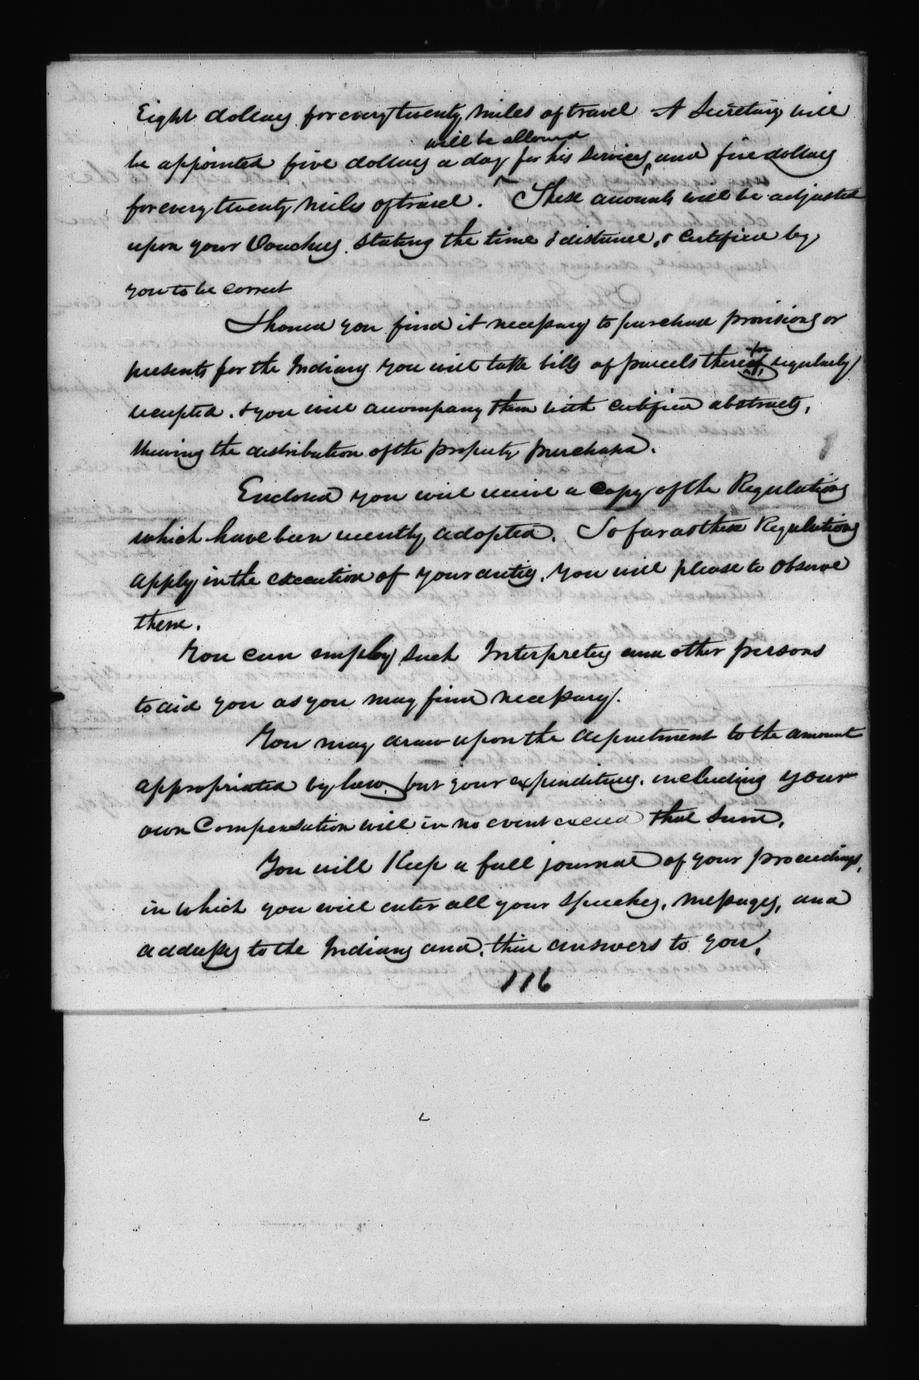 Eight dollars for every twenty miles of travel A Secretary will
will be allowed
be appointed five dollars a day for his services, and five dollars
for every twenty miles of travel. These accounts will be adjusted
upon your Vouchers stating the time & distance, & certified by
you to be correct
Should you find it necessary to purchase provisions or
presents for the Indians you will take bills of parcels therefor regularly
receipted, & you will accompany them with certified abstracts,
shewing the distribution of the property purchased.
Enclosed you will receive a copy of the Regulations
which have been recently adopted. So far as these Regulations
apply in the execution of your duties, you will please to observe
them.
You can employ such Interpreters and other persons
to aid you as you may find necessary.
You may draw upon the department to the amount
appropriated by law, but your expenditures, including your
own Compensation will in no event exceed that sum.
You will Keep a full journal of your proceedings,
in which you will enter all your speeches, messages, and
addresses to the Indians and their answers to you.
116